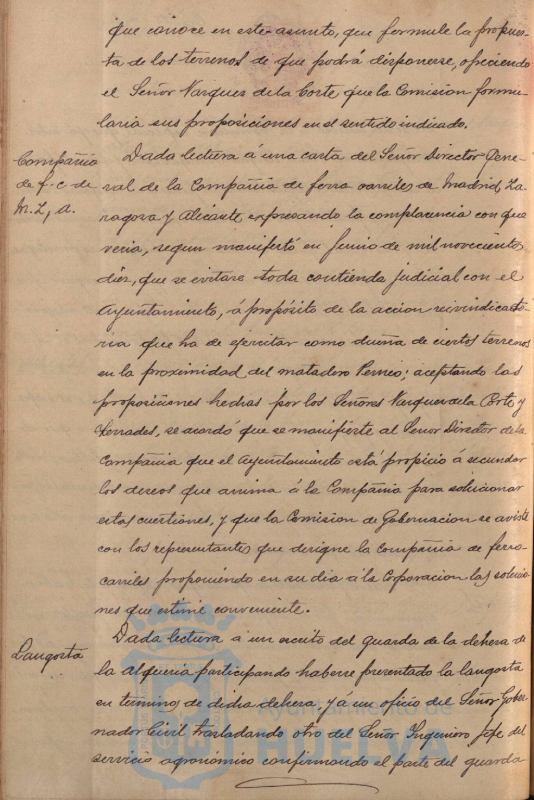 que conoce en este asunto, que formule la propues-
ta de los terrenos de que podrá disponerse, ofreciendo
el Señor Vazquez de la Corte que la Comision formu-
laria sus proposiciones en el sentido indicado.
Compañia
de f. c. de
M. Z, A.
Dada lectura á una carta del Señor Director Gene-
ral de la Compañia de ferro carriles de Madrid, Za-
ragoza y Alicante, expresando la complacencia con que
veria, segun manifestó en Junio de mil novecientos
diez, que se evitase toda contienda judicial con el
Ayuntamiento, á propósito de la accion reivindicato-
ria que ha de ejercitar como dueña de ciertos terrenos
en la proximidad del matadero Perneo; aceptando las
proposiciones hechas por los Señores Vazquez de la Corte y
Terrades, se acordó que se manifieste al Señor Director de la
Compañia que el Ayuntamiento está propicio á secundar
los deseos que anima á la Compañia para solucionar
estas cuestiones, y que la Comision de Gobernacion se aviste
con los representantes que designe la Compañia de ferro-
carriles proponiendo en su dia á la Corporacion las solucio-
nes que estime conveniente.
Langosta
Dada lectura á un escrito del guarda de la dehesa de
la Alqueria participando haberse presentado la langosta
en termino de dicha dehesa, y á un oficio del Señor Gober-
nador Civil trasladando otro del Señor Ingeniero Jefe del
servicio agronómico confirmando el parte del guarda
Ayuntamiento de
HUELVA